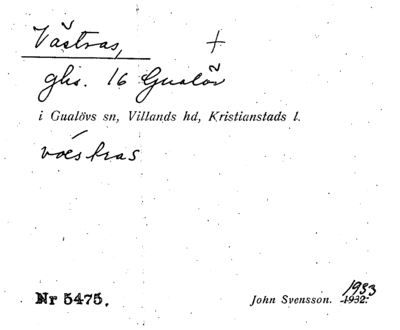 Västras, +
ghs. 16 Gualöv
i Gualövs sn, Villands hd, Kristianstads l.
Nr 5475. John Svensson. 1932. 1933